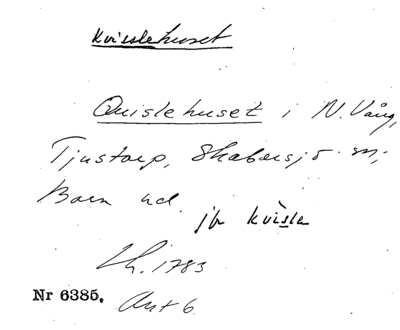 Kvisslehuset
Quislehuset i N. Vång,
Tjustorp, Skabersjö sn;
Bara hd.
jfr kvissla
Lh. 1783
Nr 6385. Akt 6